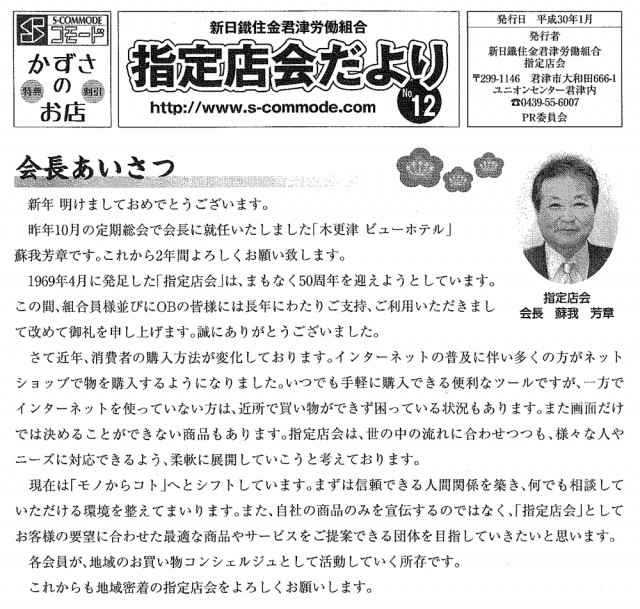 S-COMMODE
コモード
かずさ
の
特典
割引
お店
新日鐵住金君津労働組合
指定店会だより
No.12
http://www.s-commode.com
発行日　平成30年1月
発行者
新日鐵住金君津労働組合
指定店会
〒299-1146　君津市大和田666-1
ユニオンセンター君津内
☎0439-55-6007
PR委員会
会長あいさつ
新年 明けましておめでとうございます。
昨年10月の定期総会で会長に就任いたしました「木更津 ビューホテル」
蘇我芳章です。これから2年間よろしくお願い致します。
1969年4月に発足した「指定店会」は、まもなく50周年を迎えようとしています。
この間、組合員様並びにOBの皆様には長年にわたりご支持、ご利用いただきまし
て改めて御礼を申し上げます。誠にありがとうございました。
指定店会
会長　蘇我　芳章
さて近年、消費者の購入方法が変化しております。インターネットの普及に伴い多くの方がネット
ショップで物を購入するようになりました。いつでも手軽に購入できる便利なツールですが、一方で
インターネットを使っていない方は、近所で買い物ができず困っている状況もあります。また画面だけ
では決めることができない商品もあります。指定店会は、世の中の流れに合わせつつも、様々な人や
ニーズに対応できるよう、柔軟に展開していこうと考えております。
現在は「モノからコト」へとシフトしています。まずは信頼できる人間関係を築き、何でも相談して
いただける環境を整えてまいります。また、自社の商品のみを宣伝するのではなく、「指定店会」として
お客様の要望に合わせた最適な商品やサービスをご提案できる団体を目指していきたいと思います。
各会員が、地域のお買い物コンシェルジュとして活動していく所存です。
これからも地域密着の指定店会をよろしくお願いします。